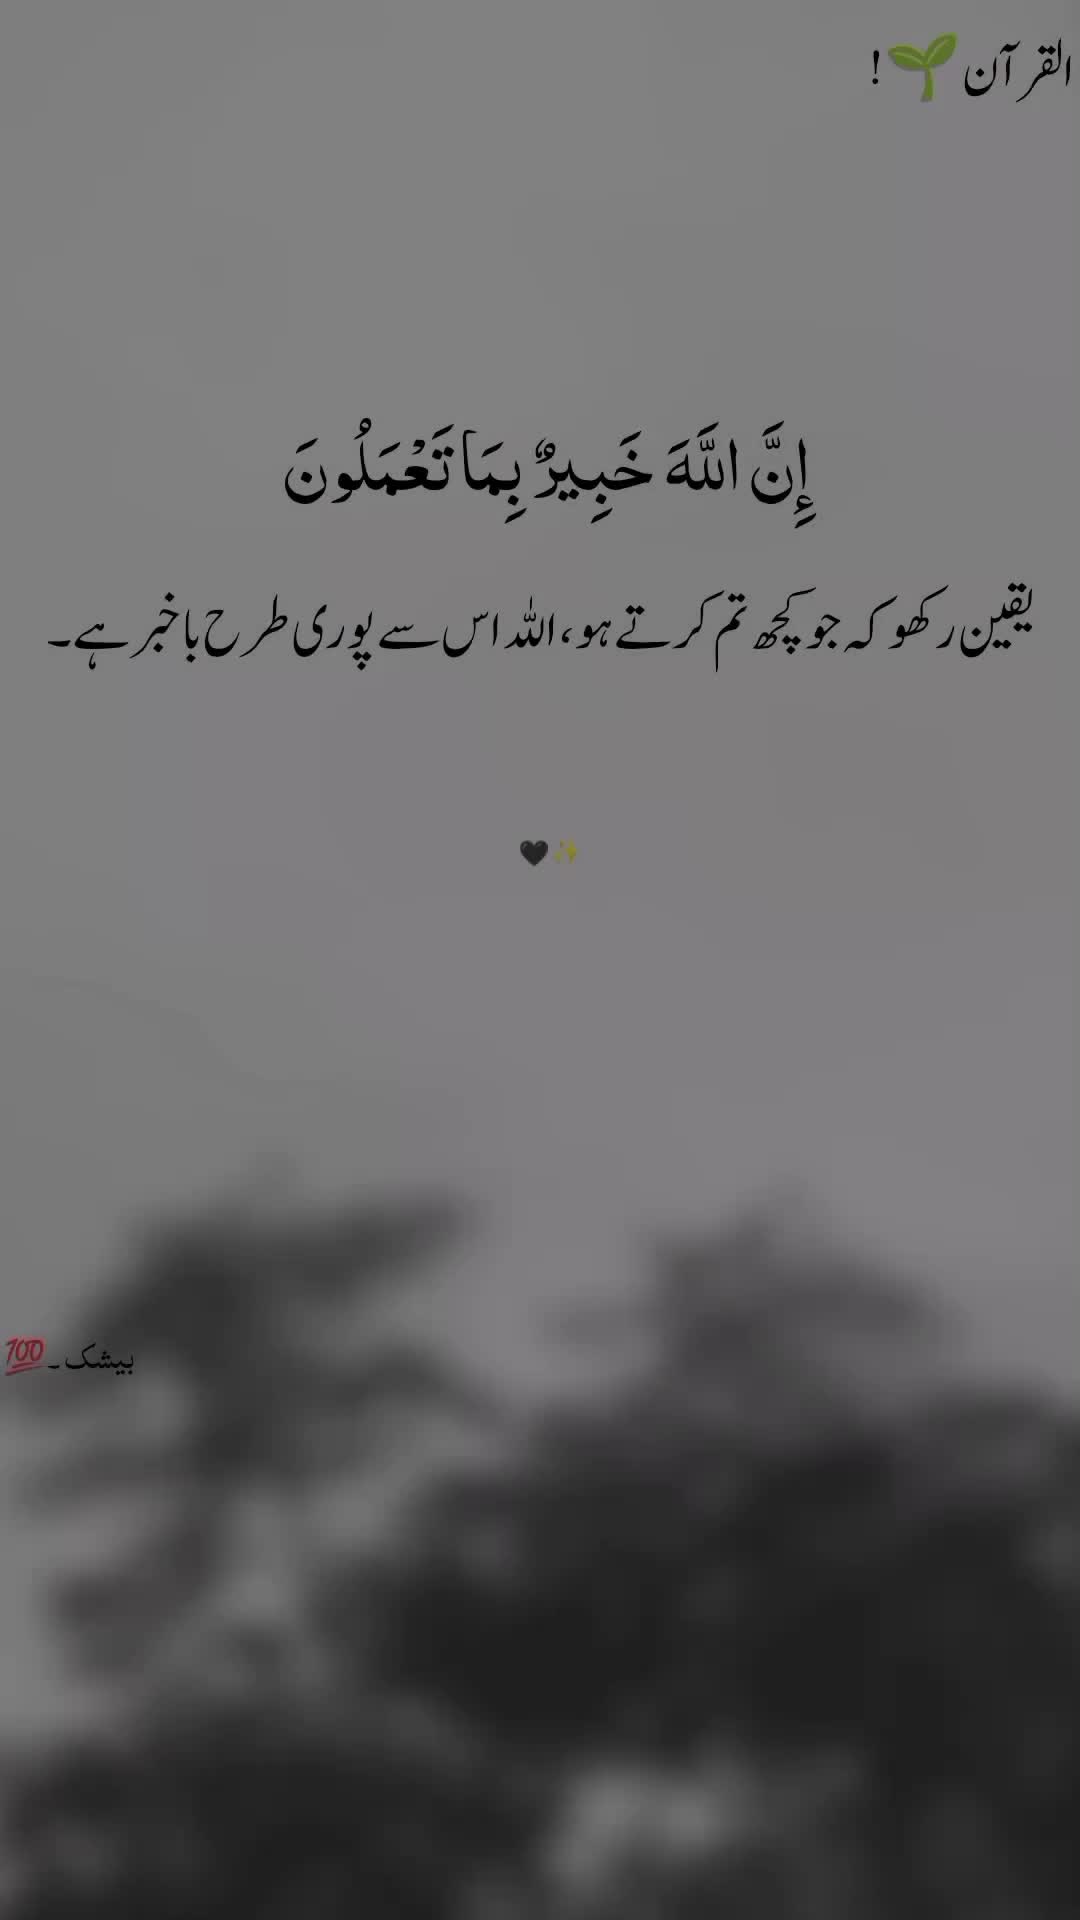 القرآن 🌱!
إِنَّ اللَّهَ خَبِيرٌ بِمَا تَعْمَلُونَ
یقین رکھو کہ جو کچھ تم کرتے ہو، اللہ اس سے پوری طرح باخبر ہے۔
🖤✨
بیشک۔💯